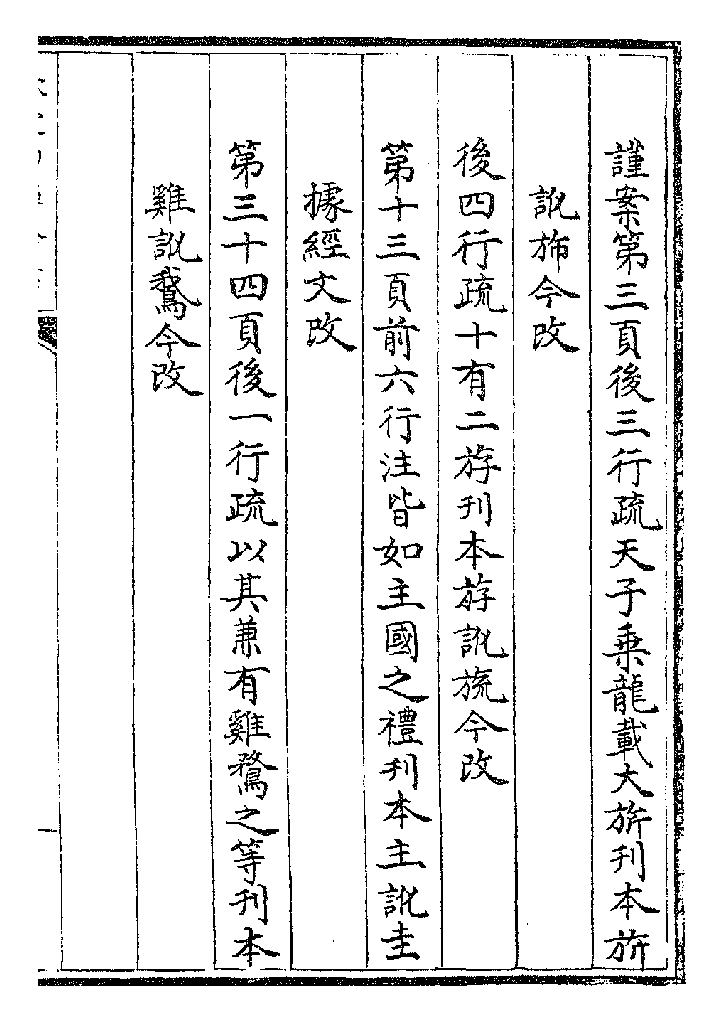 謹案第三頁後三行疏天子乗龍載大旂刊本旂
訛斾今改
後四行疏十有二斿刊本斿訛旒今改
第十三頁前六行注皆如主國之禮刊本主訛圭
據經文改
第三十四頁後一行疏以其兼有雞鶩之等刊本
雞訛鵞今改